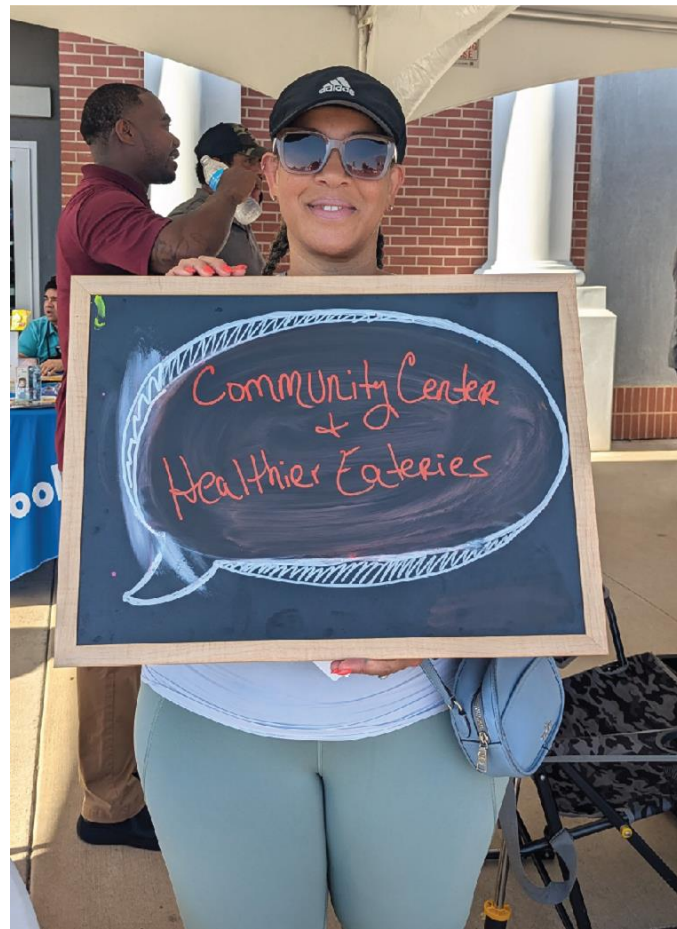 adidas
Community Center
+
Healthier Eateries